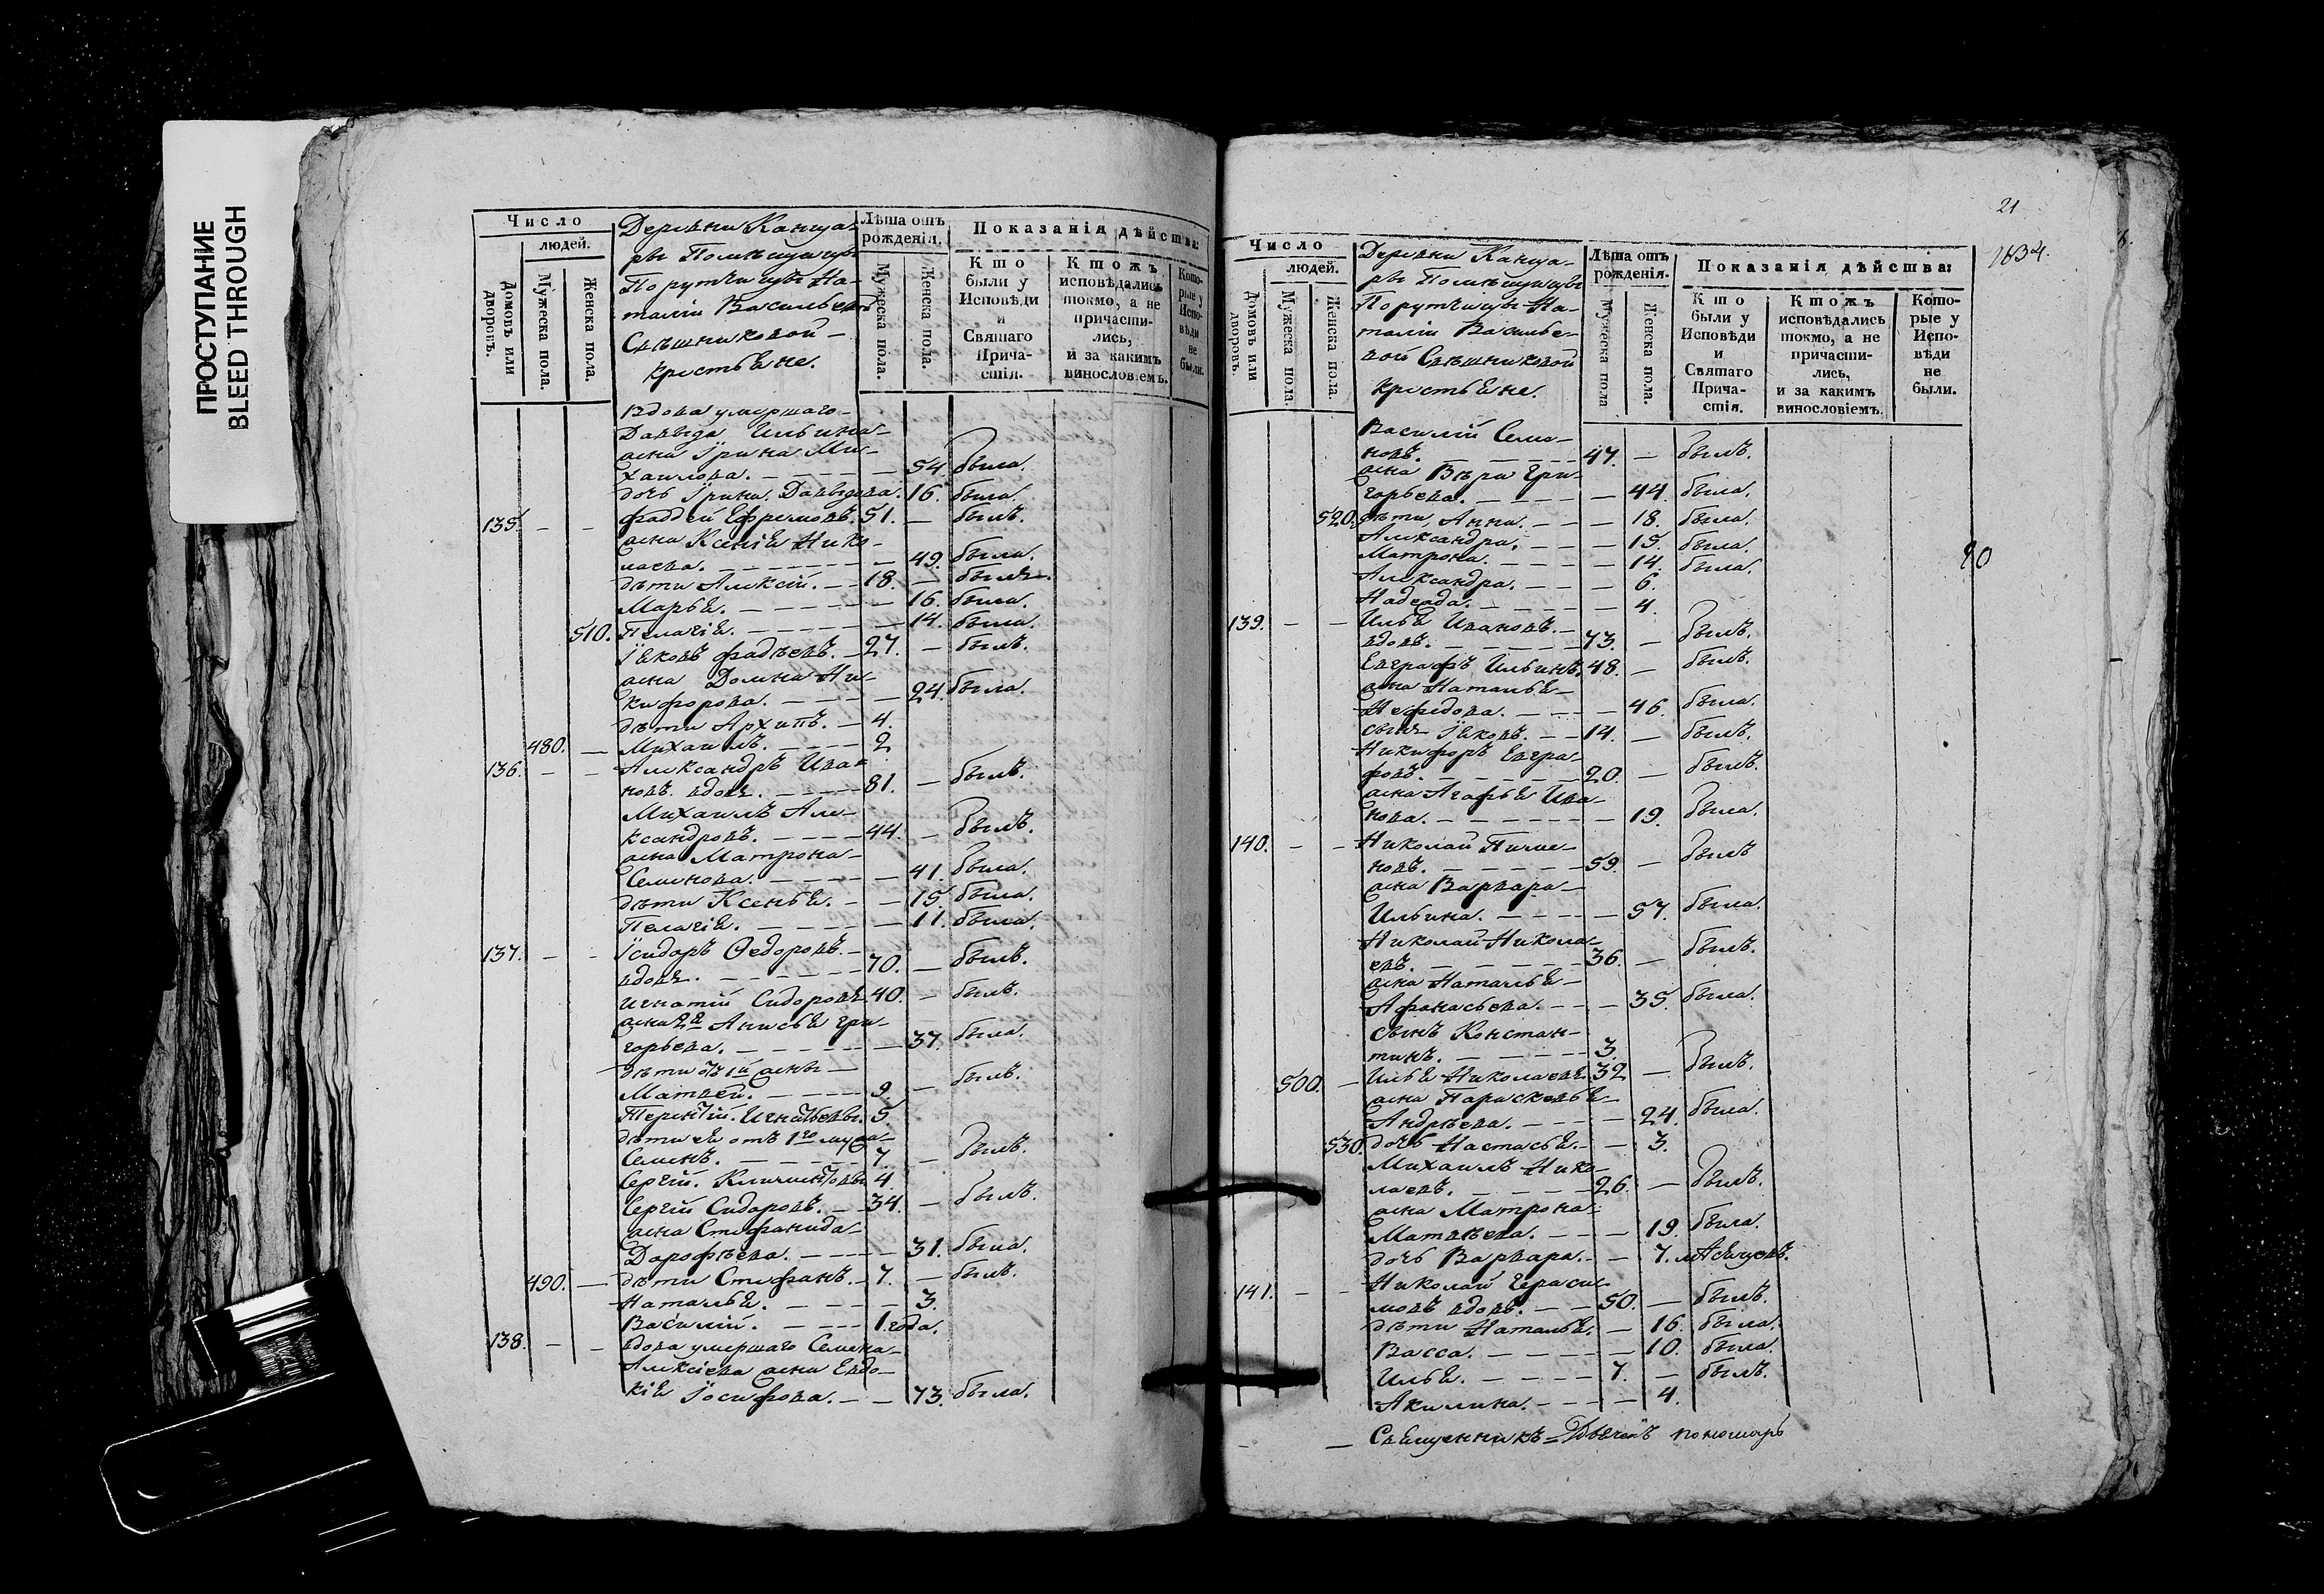 ПРОСТУПАНИЕ
BLEED THROUGH
Число
людей.
Домовъ или дворовъ.
Мужеска пола.
Женска пола.
Деревни Канца-
ры Помѣщицы
Порутчицы На-
таліи Васильевой
Свѣшниковой
крестьяне.
Лѣта отъ рожденія.
Мужеска пола.
Женска пола.
Показанія дѣйства:
Кто были у Исповѣди и Святаго Прича-стія.
Ктожъ исповѣдались токмо, а не причасти-лись, и за какимъ винословіемъ.
Кото-рые у Испо-вѣди не были.
Вдова умершаго
Давыда Ильина
жена Ирина Ми-
хаилова. 54. была.
дочь Ирина Давыдова. 16. была.
135. Фаддей Ефремовъ. 51. былъ.
жена Ксенія Нико-
лаева. 49. была.
дѣти Алексій. 18. былъ.
Марья. 16. была.
510. Пелагія. 14. была.
Іаковъ Фадѣевъ. 27. былъ.
жена Домна Ни-
кифорова. 24. была.
дѣти Архипъ. 4.
480. Михаилъ. 2.
136. Александръ Ива-
новъ вдовъ. 81. былъ.
Михаилъ Але-
ксандровъ. 44. былъ.
жена Матрона
Семенова. 41. была.
дѣти Ксенья. 15. была.
Пелагія. 11. была.
137. Ісидоръ Ѳедоровъ
вдовъ. 70. былъ.
Игнатій Сидоровъ 40. былъ.
жена 2я Анисья Гри-
горьева. 37. была.
дѣти отъ 1й жены
Матвей. 9. былъ.
Терентій Игнатьевы. 5.
дѣти ея отъ 1го мужа
Семенъ. 7. былъ.
Сергій Климентовы 4.
Сергій Сидоровъ. 34. былъ.
жена Стефанида
Дорофѣева. 31. была.
490. дѣти Стефанъ. 7. былъ.
Наталья. 3.
Василій. 1 года.
138. вдова умершаго Семена
Алексіева жена Евдо-
кія Іосифова. 73. была.
21
1834.
Число
людей.
Домовъ или дворовъ.
Мужеска пола.
Женска пола.
Деревни Канца-
ры Помѣщицы
Порутчицы На-
таліи Василье-
вой Свѣшниковой
крестьяне.
Лѣта отъ рожденія.
Мужеска пола
Женска пола.
Показанія дѣйства:
Кто были у Исповѣди и Святаго Прича-стія.
Ктожъ исповѣдались токмо, а не причасти-лись, и за какимъ винословіемъ.
Кото-рые у Испо-вѣди не были.
Василій Семе-
новъ. 47. былъ.
жена Вѣра Гри-
горьева. 44. была.
520. дѣти, Анна. 18. была.
Александра. 15. была.
Матрона. 14. была.
Александра. 6.
Надежда. 4.
139. Илья Ивановъ
вдовъ. 73. былъ.
Евграфъ Ильинъ. 48. былъ.
жена Наталья
Нефедова. 46. была.
сынъ Іаковъ. 14. былъ.
Никифоръ Евгра-
фовъ. 20. былъ.
жена Агафья Ива-
нова. 19. была.
140. Николай Пиме-
новъ. 59. былъ
жена Варвара
Ильина. 57. была.
Николай Никола-
евъ. 36. былъ.
жена Наталья
Афанасьева. 35. была.
сынъ Констан-
тинъ. 3.
500. Илья Николаевъ 32 былъ.
жена Параскевья
Андрѣева. 24. была.
530. дочь Настасья. 3.
Михаилъ Нико-
лаевъ. 26. былъ.
жена Матрона
Матвѣева. 19. была.
дочь Варвара. 7. мѣсяцовъ.
141. Николай Гераси-
мовъ вдовъ. 50. былъ.
дѣти Наталья. 16. была.
Васса. 10. была.
Илья. 7. былъ.
Акилина. 4.
Священникъ